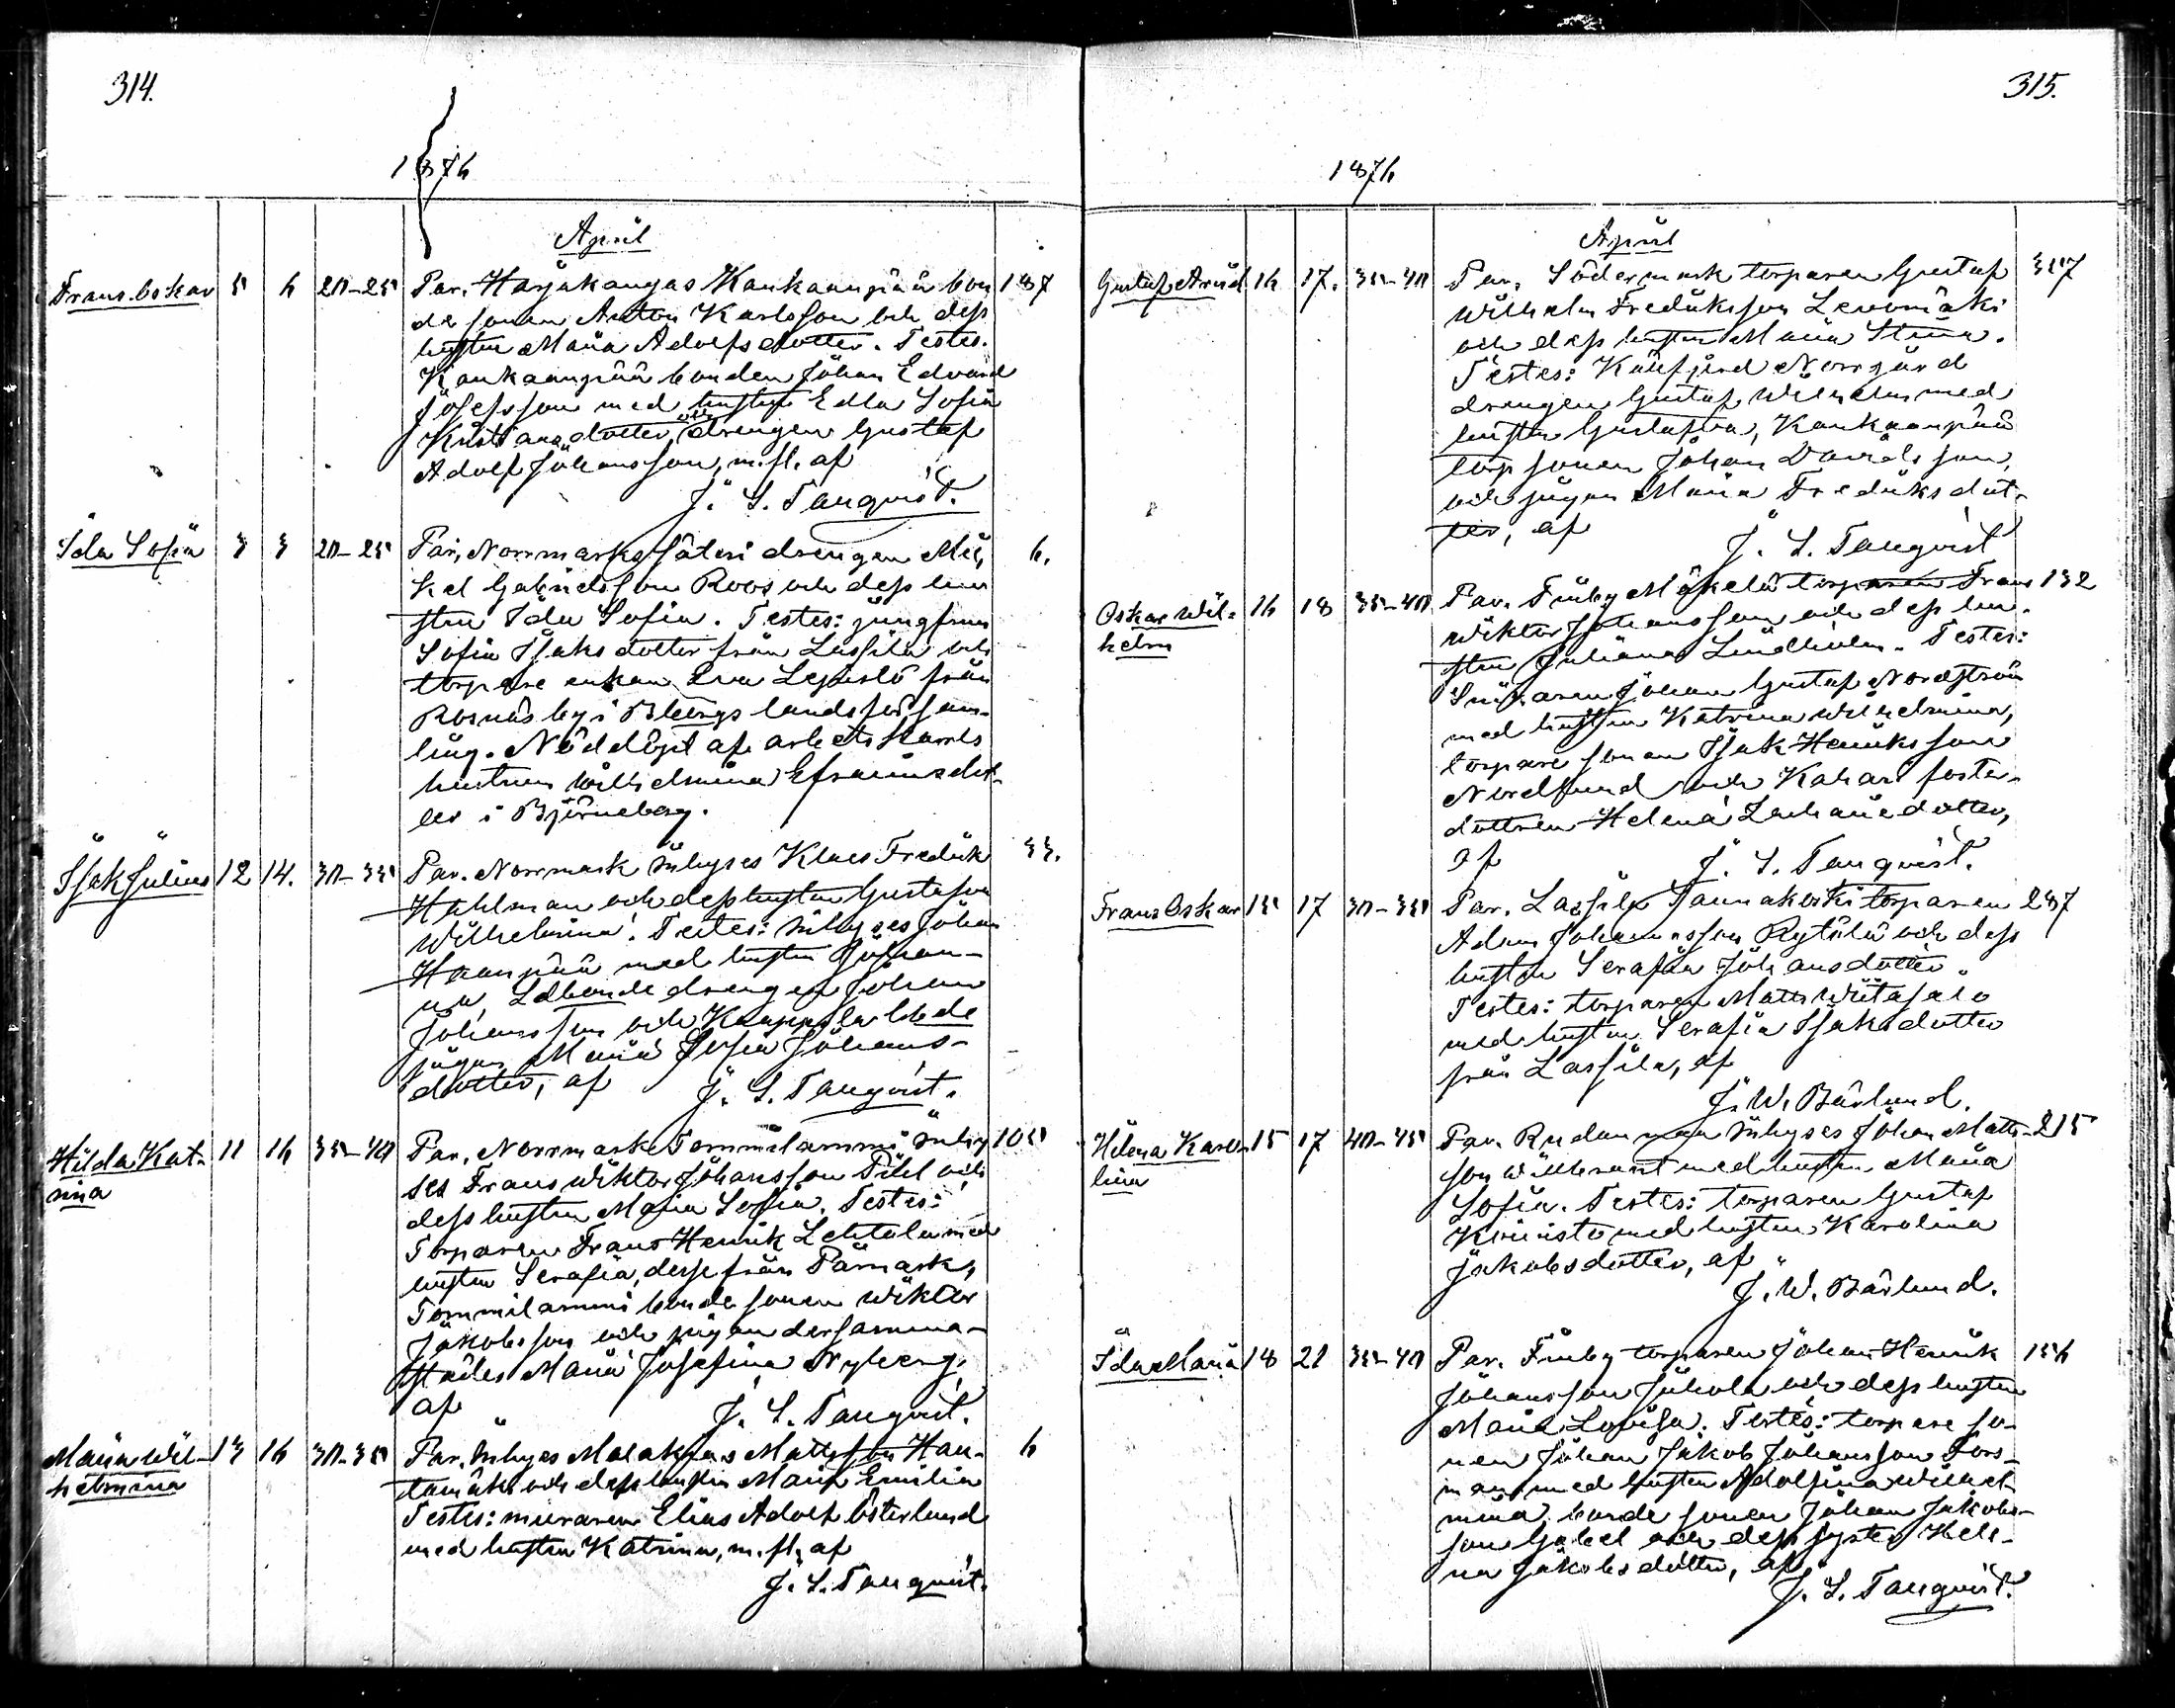 314.
1876
April
Frans Oskar 5 6 20-25 Par. Harjakangas Kankaanpää bon 187
de sonen Anton Karlsson och dess
hustru Maria Adolfsdotter. Testes.
Kankaanpää bonden Johan Edvard
Josefsson med hustru Edla Sofia
Kristiansdotter, och drengen Gustaf
Adolf Johansson, m.fl. af
J. S. Tanqvist.
Ida Sofia 3 3 20-25 Par. Norrmarks säteri drengen Mi- 6.
kel Gabrielsson Roos och dess hu
stru Ida Sofia. Testes: jungfrun
Sofia Isaksdotter från Lassila och
torpare enkan Eva Lepistö från
Rosnäs by i B:borgs landsförsam-
ling. Nöddöpt af arbetskarls
hustrun Wilhelmina Efraimsdot-
ter i Björneborg.
Isak Julius 12 14. 30-35 Par. Norrmark inhyses Klaes Fredrik 33.
Hahlman och dess hustru Gustafva
Wilhelmina. Testes: inhyses Johan
Haanpää med hustru Johan-
na, bonde drengen Johan
Johansson och Kauppila bde
pigan Maria Sofia Johans-
dotter, af J. S. Tanqvist.
Hilda Kat- 11 16 35-40 Par. Norrmark Tommilammi inhy 105
rina
ses Frans Wiktor Johansson Pihl och
dess hustru Maria Sofia. Testes:
Torparen Frans Henrik Lehtola med
hustru Serafia, desse från Påmark,
Tommilammi bonde sonen Wiktor
Jakobsson och pigan dersamma-
städes Maria Josefina Nyberg,
af J. S. Tanqvist.
Maria Wil- 13 16 30-35 Par. Inhyses Malakias Mattsson Han- 6
helmina
tamäki och dess hustru Maria Emilia
Testes: muraren Elias Adolf Österlund
med hustru Katrina, m.fl. af
J. S. Tanqvist.
315.
1876
April
Gustaf Arvid 16 17. 35-40 Par. Södermark torparen Gustaf 317
Wilhelm Fredriksson Levomäki
och dess hustru Maria Stina.
Testes: Norrgård
drengen Gustaf Wilhelm med
hustru Gustafva, Kankaanpää
torp sonen Johan Davidsson,
och pigan Maria Fredriksdot-
ter, af
J. S. Tanqvist
Oskar Wil- 16 18 35-40 Par. Finby Mäkelä torparen Frans 132
helm
Wiktor Johansson och dess hu-
stru Juliana Lindholm. Testes:
Snickaren Johan Gustaf Nordström
med hustru Katrina Wilhelmina,
torpare sonen Isak Henriksson
Nordlund och Kahari foster-
dottren Helena Zachariedotter,
af J. S. Tanqvist.
Frans Oskar 15 17 30-35 Par. Lassila torparen 287
Adam Johansson Rytilä och dess
hustru Serafia Johansdotter.
Testes: torparen Matts Wiitasalo
med hustru Serafia Isaksdotter
från Lassila, af
J. W. Bärlund.
Helena Karo- 15 17 40-45 Par. Rudanmaa inhyses Johan Matts- 215
lina
son med hustru Maria
Sofia. Testes: torparen Gustaf
Koivisto med hustru Karolina
Jakobsdotter, af
J. W. Bärlund.
Ida Maria 18 21 35-40 Par. Finby torparen Johan Henrik 156
Johansson Juhola och dess hustru
Maria Lovisa. Testes: torpare so-
nen Johan Jakob Johansson Fors-
man med hustru Adolfina Wilhel-
mina, bonde sonen Johan Jakobs-
son Gabel och dess syster Hele-
na Jakobsdotter, af
J. S. Tanqvist.